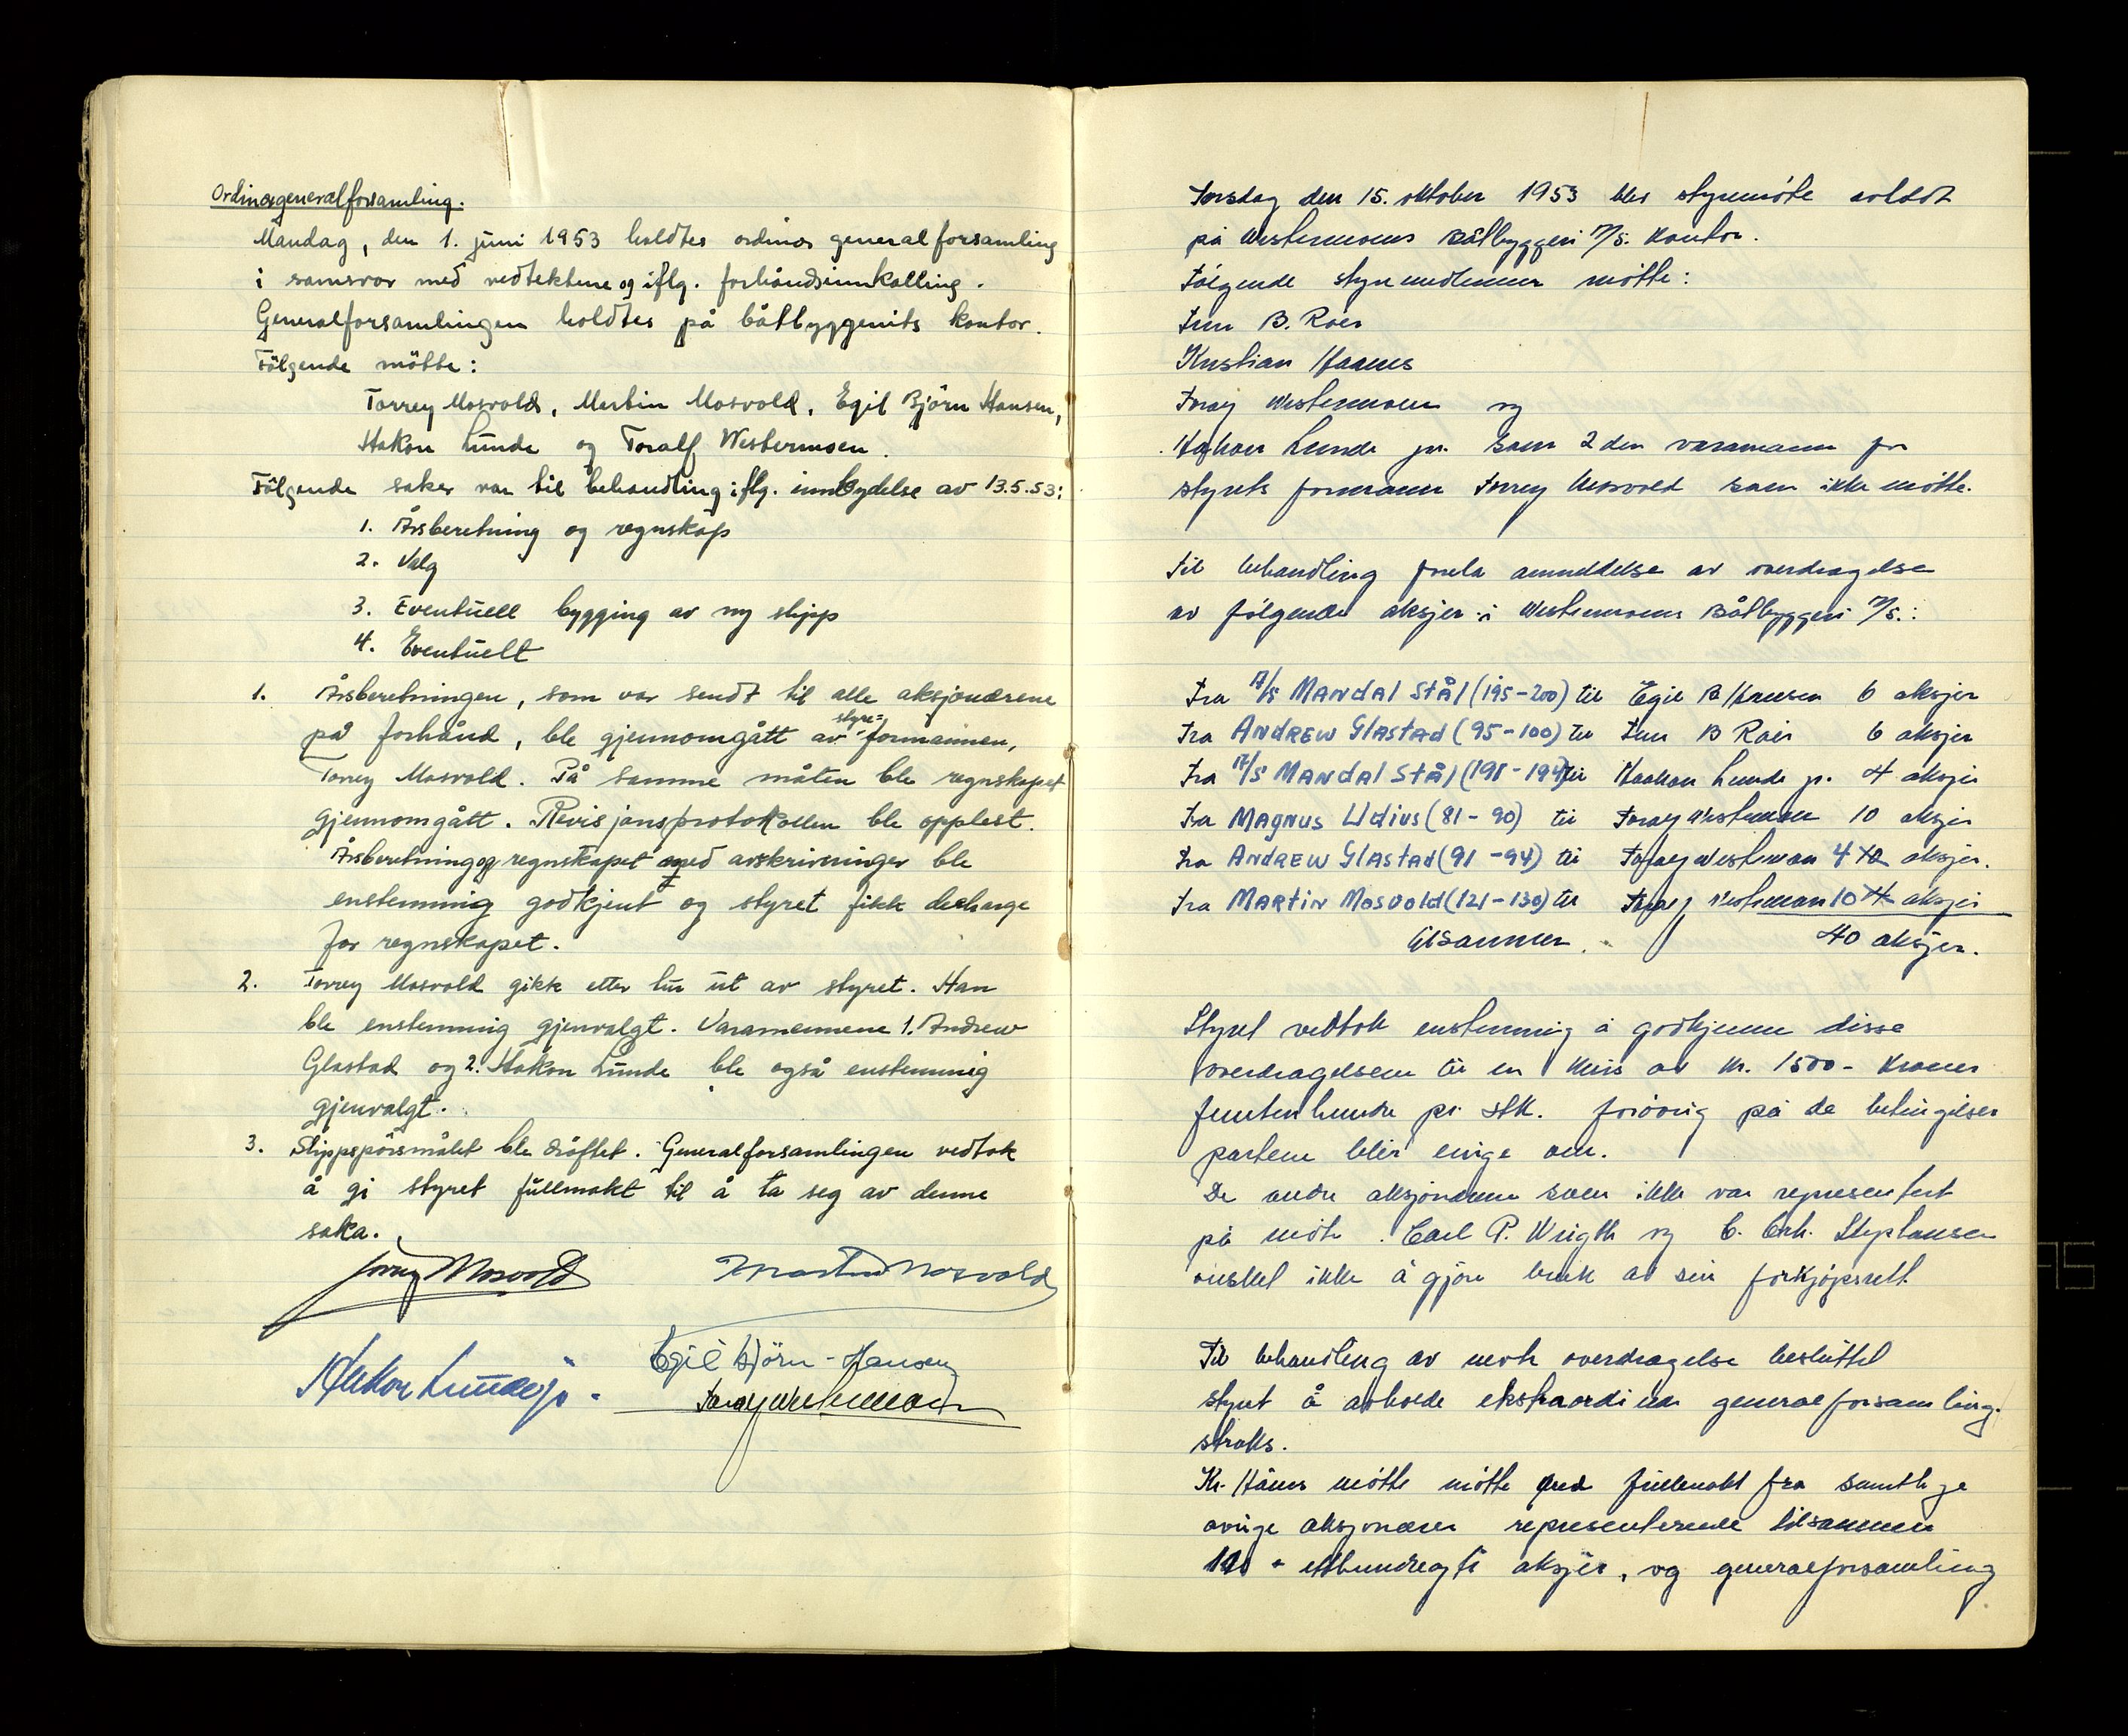 Ordinærgeneralforsamling.
Mandag, den 1. juni 1953 holdtes ordinær generalforsamling
i samsvar med vedtektene og iflg. forhåndsinnkalling.
Generalforsamlingen holdtes på båtbyggerits kontor.
Følgende møtte:
Torrey Mosvold, Martin Mosvold, Egil Björn Hansen,
Hakon Lunde og Toralf Westermoen.
Følgende saker var til behandling iflg. innbydelse av 13.5.53:
1. Årsberetning og regnskap
2. Valg
3. Eventuell bygging av ny slipp
4. Eventuelt
1. Årsberetningen, som var sendt til alle aksjonærene
på forhånd, ble gjennomgått av styre=formannen,
Torrey Mosvold. På samme måten ble regnskapet
gjennomgått. Revisjonsprotokollen ble opplest.
Årsberetning og regnskapet med avskrivninger ble
enstemmig godkjent og styret fikk decharge
for regnskapet.
2. Torrey Mosvold gikk etter tur ut av styret. Han
ble enstemmig gjenvalgt. Varamennene 1. Andrew
Glastad og 2. Hakon Lunde ble også enstemmig
gjenvalgt.
3. Slippspörsmålet ble dröftet. Generalforsamlingen vedtok
å gi styret fullmakt til å ta seg av denne
saka.
Torrey Mosvold Martin Mosvold
Hakon Lunde jr. Egil Björn-Hansen
Toralf Westermoen
Torsdag den 15. oktober 1953 blev styremöte avholdt
på Westermoens Båtbyggeri A/S. Kontor.
Fölgende styremedlemmer mötte:
Finn B. Roer
Kristian Haanes
Toralf Westermoen og
Hakon Lunde jr. som 2den varamann for
styrets formann Torrey Mosvold som ikke mötte.
Til behandling forelå anmeldelse av overdragelse
av fölgende aksjer i Westermoens Båtbyggeri A/S.:
Fra A/S Mandal Stål (195-200) til Egil B Hansen 6 aksjer
Fra Andrew Glastad (95-100) til Finn B Roer 6 aksjer
Fra A/S Mandal Stål (191-194) til Haakon Lunde jr. 4 aksjer
Fra Magnus Udius (81-90) til Toralf Westermoen 10 aksjer
Fra Andrew Glastad (91-94) til Toralf Westermoen 4 10 aksjer.
Fra Martin Mosvold (121-130) til Toralf Westermoen 10 4 aksjer
tilsammen. 40 aksjer.
Styret vedtok enstemmig å godkjenne disse
overdragelsene til en kurs av kr. 1500- kroner
femtenhundre pr. stk. forövrig på de betingelser
partene blir enige om.
De andre aksjonærene som ikke var representert
på möte. Carl P. Wrigth og C. Chr. Stephansen
önsket ikke å gjöre bruk av sin forkjöpsrett.
Til behandling av nevnte overdragelse besluttet
styret å avholde ekstraordinær generalforsamling.
straks.
Kr. Hånes mötte mötte med fullmakt fra samtlige
övrige aksjonærer representerende tilsammen
110 - etthundreogti aksjer, og generalforsamling